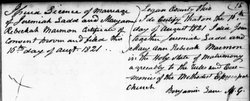 Issued License of Marriage
of Jeremiah Ladd and Maryann
Rebekah Marmon Certificate of
Consent proven and filed this
16th day of Augt 1821
Logan County This
I do Certify that on the 16th
day of August 1821 I did Join
together Jeremiah Ladd and
Mary Ann Rebekah Marmon in
the Holy State of matrimony,
agreeably to the rules and Cere-
monies of the Methodist Epis
Church
Benjamin